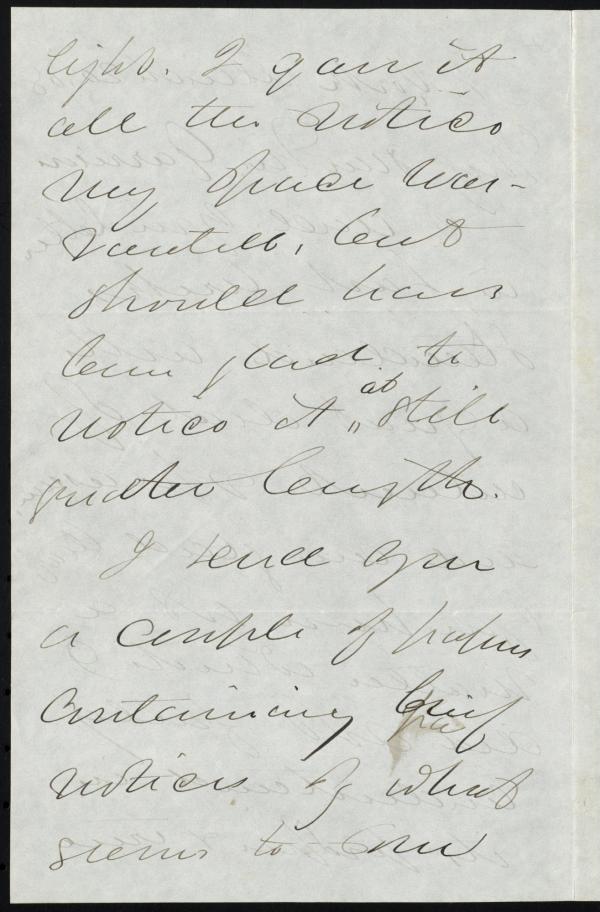 light. I gave it
all the notice
my space war-
ranted, but
should have
been glad to
notice it at still
greater length.
I send you
a couple of papers
containing brief
notices of what
seems to